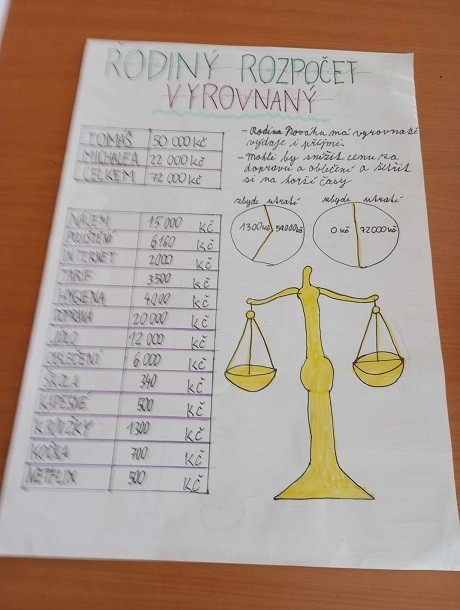 RODINÝ ROZPOČET
VYROVNANÝ
TOMÁŠ 50 000 Kč
MICHAELA 22 000 Kč
CELKEM 72 000 Kč
- Rodina Nováků má vyrovnané
výdaje i příjmi.
- Mohli by snížit cenu za
dopravu a oblečení a šetřit
si na horší časy
zbyde utratí
1300 Kč
zbyde utratí
0 Kč 72000 Kč
NÁJEM 15 000 Kč
POJIŠTĚNÍ 6160 Kč
INTERNET 2000 Kč
TARIF 3500 Kč
HYGIENA 4000 Kč
DOPRAVA 20 000 Kč
JÍDLO 12 000 Kč
OBLEČENÍ 6 000 Kč
ŠKOLA 340 Kč
KAPESNÉ 500 Kč
KROUŽKY 1300 Kč
KOČKA 700 Kč
NETFLIX 500 Kč